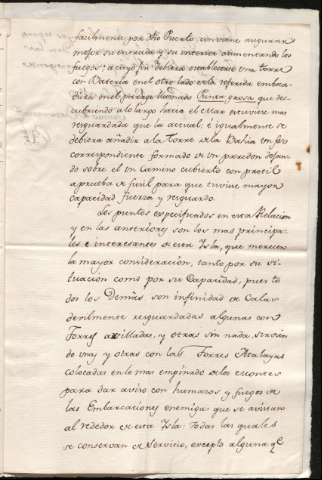 facilmente por dho Puerto, conviene asegurar
mejor su entrada, y su interior aumentando los
fuegos; a cuyo fin debiera establecerse una torre
con Bateria en el otro lado de la referida emboca-
dura en el parage llamado Punta grosa que des-
cubriendo a lo largo hacia el Mar estuviese mas
resguardada que la actual, é igualmente se
debiera añadir a la Torre de la Bahia un foso
correspondiente formado de un paredon dejan-
do sobre el un Camino cubierto con parapeto
a prueba de fusil para que tuviese mayor
capacidad fuerza y resguardo.
Los puntos especificados en esta Relacion
y en las anteriores son los mas principa-
les é interesantes de esta Isla, que merecen
la mayor consideracion, tanto por su si-
tuacion como por su Capacidad, pues to-
dos los Demas son infinidad de Calas
devilmente resguardadas algunas con
Torres artilladas, y otras sin nada, sirvien-
do unas y otras con las Torres Atalayas
colocadas en lo mas empinado de los montes
para dar aviso con humazos y fuegos de
las Embarcaciones enemigas que se avistan
al rededor de esta Isla; todas las quales
se conservan de Servicio, excepto alguna qe